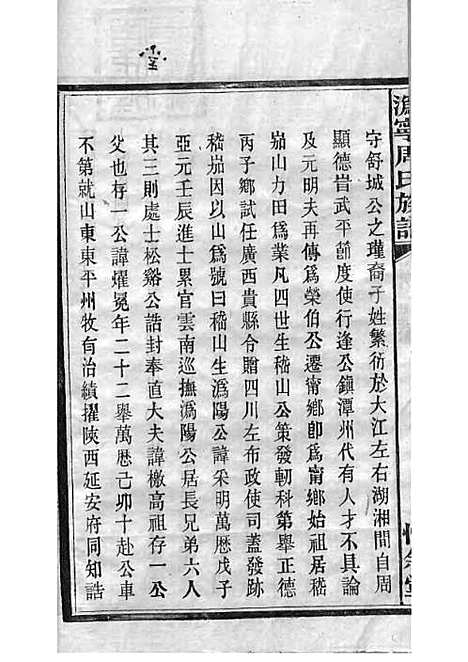 溈寧周氏族譜
守舒城公之瑾裔子姓繁衍於大江左右湖湘間自周
顯德昔武平節度使行逢公鎭潭州代有人才不具論
及元明夫再傳爲榮伯公遷甯鄕卽爲甯鄕始祖居嵇
峀山力田爲業凡四世生嵇山公策發軔科第舉正德
丙子鄕試任廣西貴縣令贈四川左布政使司蓋發跡
嵇峀因以山爲號曰嵇山生溈陽公諱采明萬曆戊子
亞元壬辰進士累官雲南巡撫溈陽公居長兄弟六人
其三則處士松谿公誥封奉直大夫諱檄高祖存一公
父也存一公諱燿冕年二十二舉萬曆己卯十赴公車
不第就山東東平州牧有治績擢陝西延安府同知誥